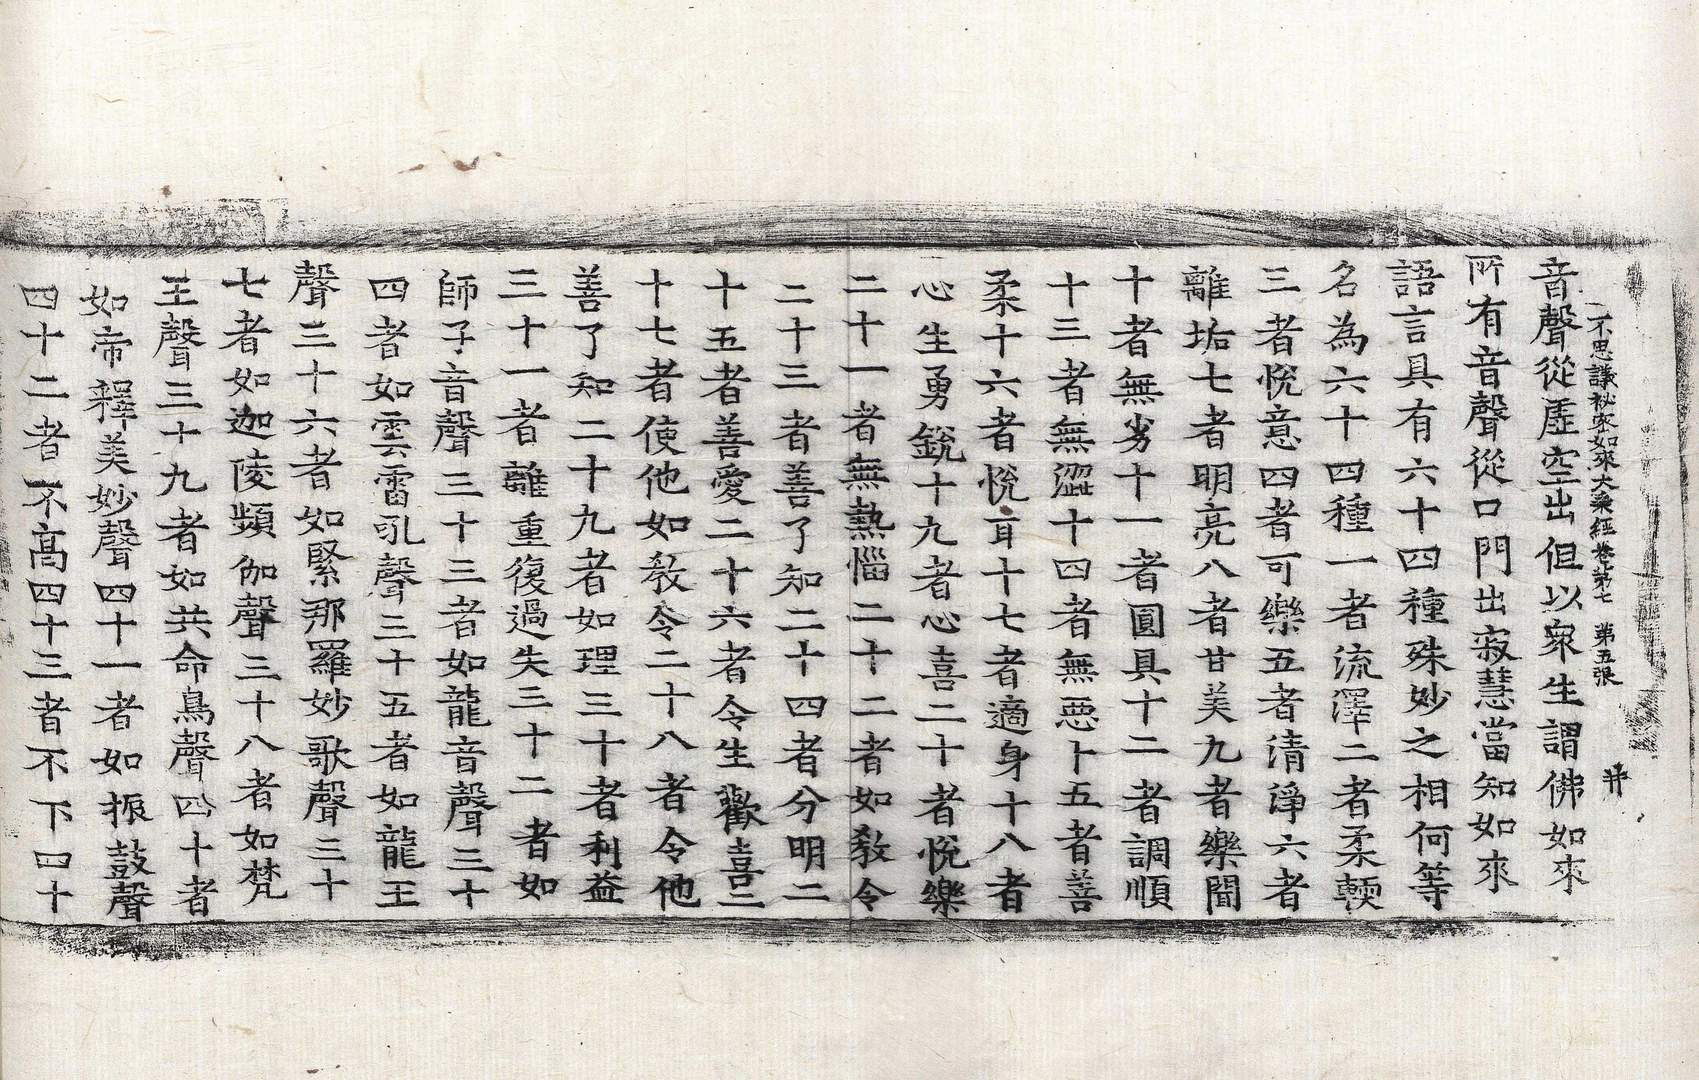 不思議祕密如來大乘經卷第七 第五張 井
音聲從虛空出但以衆生謂佛如來
所有音聲從口門出寂慧當知如來
語言具有六十四種殊妙之相何等
名為六十四種一者流澤二者柔輭
三者悅意四者可樂五者清淨六者
離垢七者明亮八者甘美九者樂聞
十者無劣十一者圓具十二者調順
十三者無澀十四者無惡十五者善
柔十六者悅耳十七者適身十八者
心生勇銳十九者心喜二十者悅樂
二十一者無熱惱二十二者如教令
二十三者善了知二十四者分明二
十五者善愛二十六者令生歡喜二
十七者使他如教令二十八者令他
善了知二十九者如理三十者利益
三十一者離重復過失三十二者如
師子音聲三十三者如龍音聲三十
四者如雲雷吼聲三十五者如龍王
聲三十六者如緊那羅妙歌聲三十
七者如迦陵頻伽聲三十八者如梵
王聲三十九者如共命鳥聲四十者
如帝釋美妙聲四十一者如振鼓聲
四十二者不高四十三者不下四十